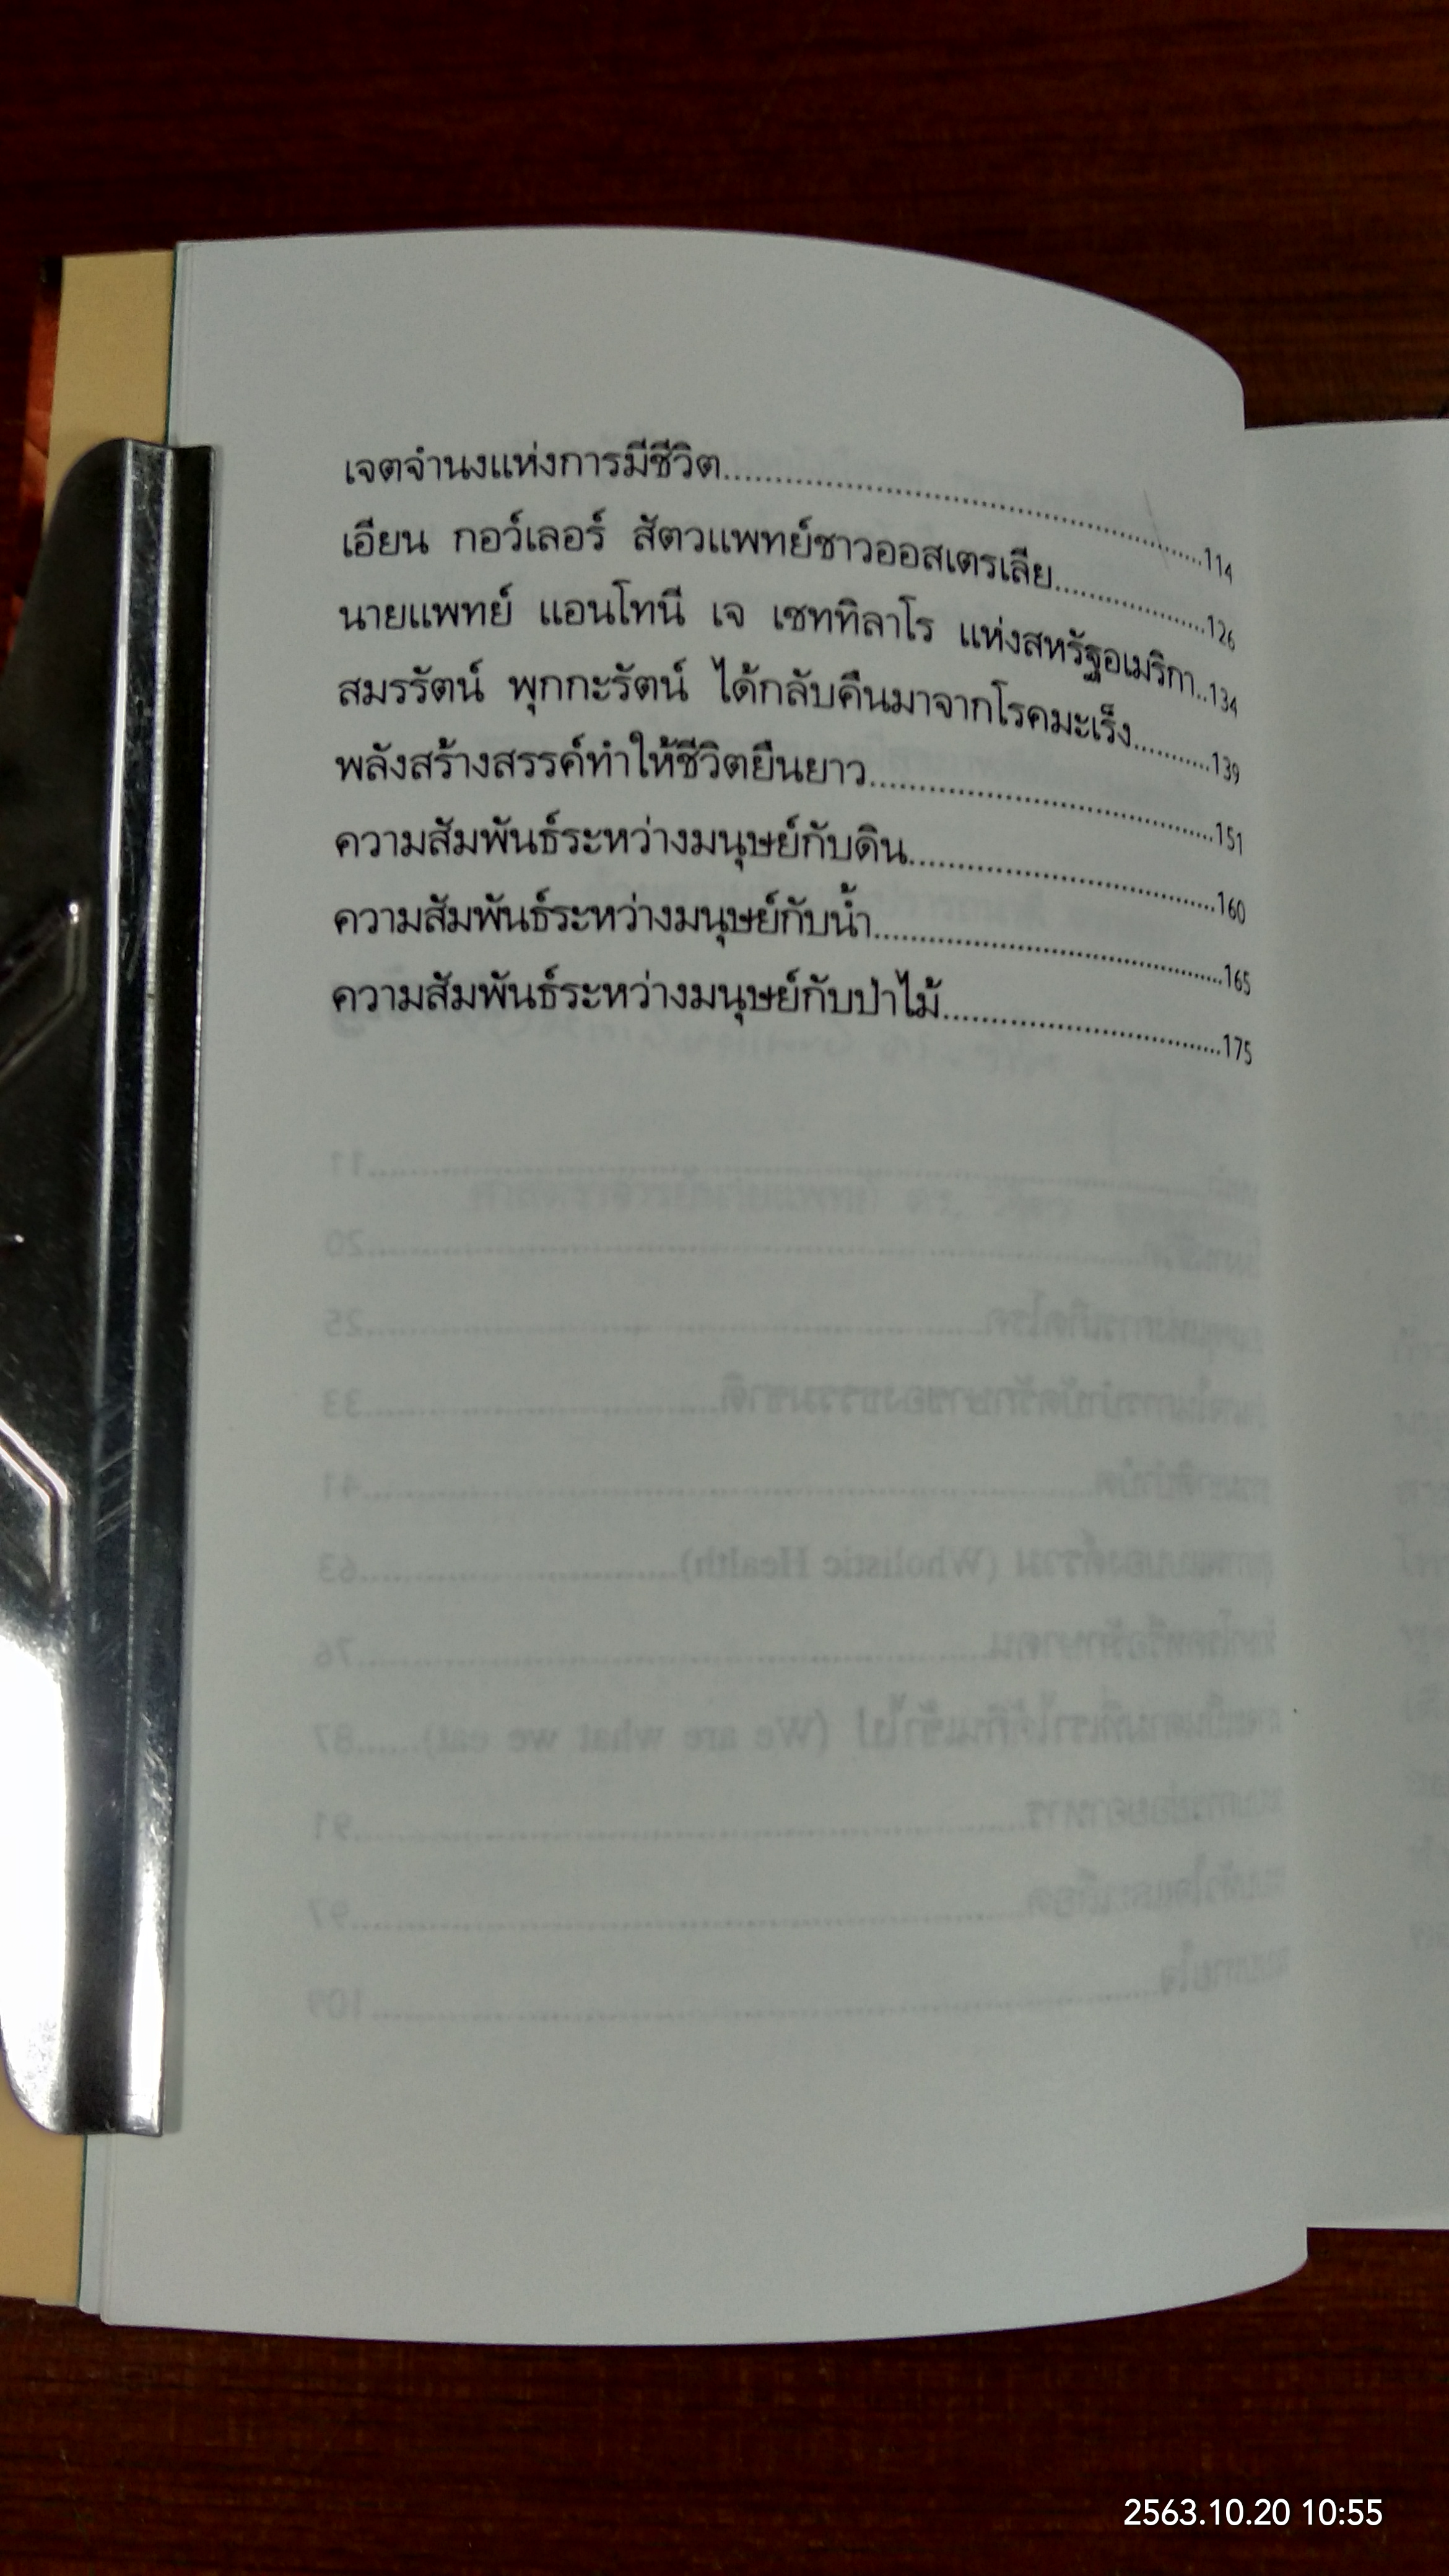 เจตจำนงแห่งการมีชีวิต..............................114
เอียน กอว์เลอร์ สัตวแพทย์ชาวออสเตรเลีย..............126
นายแพทย์ แอนโทนี เจ เซททิลาโร แห่งสหรัฐอเมริกา..134
สมรรัตน์ พุกกะรัตน์ ได้กลับคืนมาจากโรคมะเร็ง..........139
พลังสร้างสรรค์ทำให้ชีวิตยืนยาว..............................151
ความสัมพันธ์ระหว่างมนุษย์กับดิน..............................160
ความสัมพันธ์ระหว่างมนุษย์กับน้ำ..............................165
ความสัมพันธ์ระหว่างมนุษย์กับป่าไม้..............................175
2563.10.20 10:55